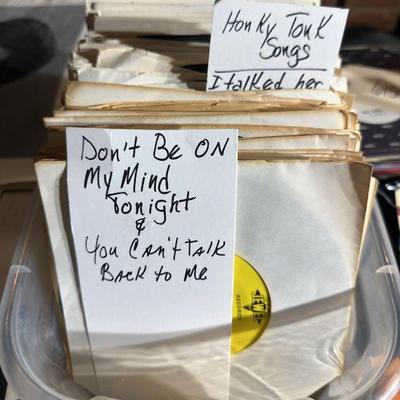 Honky Tonk
Songs
I talked her
Don't Be ON
My Mind
Tonight
&
You Can't Talk
Back to me
RECORDS